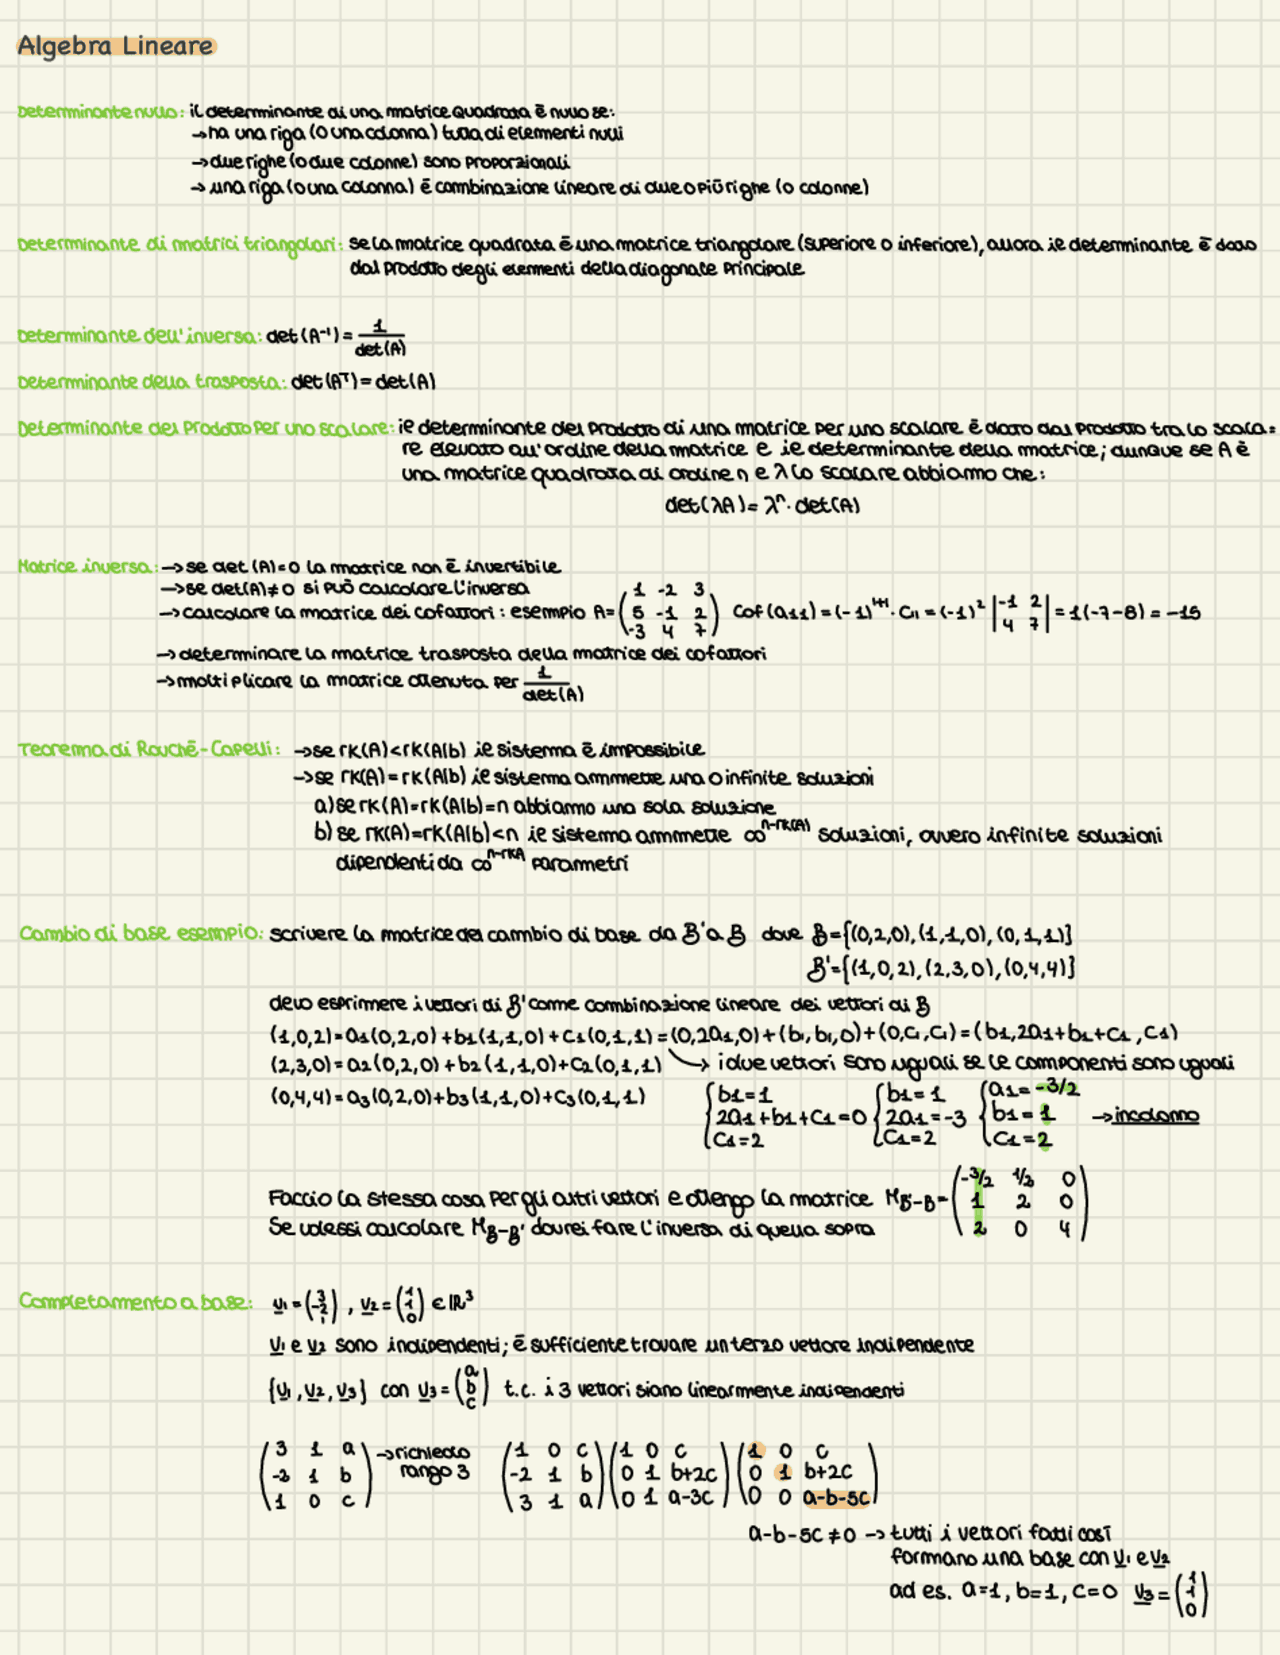 Algebra Lineare
Determinante nullo: il determinante di una matrice quadrata è nullo se:
→ ha una riga (o una colonna) tutta di elementi nulli
→ due righe (o due colonne) sono proporzionali
→ una riga (o una colonna) è combinazione lineare di due o più righe (o colonne)
Determinante di matrici triangolari: se la matrice quadrata è una matrice triangolare (superiore o inferiore), allora il determinante è dato
dal prodotto degli elementi della diagonale principale
Determinante dell'inversa: det(A⁻¹) = 1/det(A)
Determinante della trasposta: det(Aᵀ) = det(A)
Determinante del prodotto per uno scalare: il determinante del prodotto di una matrice per uno scalare è dato dal prodotto tra lo scala=
re elevato all'ordine della matrice e il determinante della matrice; dunque se A è
una matrice quadrata di ordine n e λ lo scalare abbiamo che:
det(λA) = λⁿ · det(A)
Matrice inversa: → se det(A)=0 la matrice non è invertibile
→ se det(A)≠0 si può calcolare l'inversa
→ calcolare la matrice dei cofattori: esempio A = (1 -2 3 / 5 -1 2 / -3 4 7) Cof(a11) = (-1)¹⁺¹ · C11 = (-1)² |-1 2 / 4 7| = 1(-7-8) = -15
→ determinare la matrice trasposta della matrice dei cofattori
→ moltiplicare la matrice ottenuta per 1/det(A)
Teorema di Rouchè-Capelli: → se rk(A)<rk(A|b) il sistema è impossibile
→ se rk(A)=rk(A|b) il sistema ammette una o infinite soluzioni
a) se rk(A)=rk(A|b)=n abbiamo una sola soluzione
b) se rk(A)=rk(A|b)<n il sistema ammette ∞ⁿ⁻ʳᵏ⁽ᴬ⁾ soluzioni, ovvero infinite soluzioni
dipendenti da ∞ⁿ⁻ʳᵏᴬ parametri
Cambio di base esempio: scrivere la matrice del cambio di base da B' a B dove B={(0,2,0),(1,1,0),(0,1,1)}
B'={(1,0,2),(2,3,0),(0,4,4)}
devo esprimere i vettori di B' come combinazione lineare dei vettori di B
(1,0,2)=a1(0,2,0)+b1(1,1,0)+c1(0,1,1)=(0,2a1,0)+(b1,b1,0)+(0,c1,c1)=(b1,2a1+b1+c1,c1)
(2,3,0)=a2(0,2,0)+b2(1,1,0)+c2(0,1,1) → i due vettori sono uguali se le componenti sono uguali
(0,4,4)=a3(0,2,0)+b3(1,1,0)+c3(0,1,1)
{b1=1 {b1=1 {a1=-3/2
2a1+b1+c1=0 2a1=-3 b1=1 → incolonno
c1=2 c1=2 c1=2
Faccio la stessa cosa per gli altri vettori e ottengo la matrice M B'-B = (-3/2 1/2 0 / 1 2 0 / 2 0 4)
Se volessi calcolare M B-B' dovrei fare l'inversa di quella sopra
Completamento a base: v1=(3 / -2 / 1), v2=(1 / 1 / 0) ∈ ℝ³
v1 e v2 sono indipendenti; è sufficiente trovare un terzo vettore indipendente
{v1, v2, v3} con v3=(a / b / c) t.c. i 3 vettori siano linearmente indipendenti
(3 1 a) → richiedo (1 0 c)(1 0 c)(1 0 c)
(-2 1 b) rango 3 (-2 1 b)(0 1 b+2c)(0 1 b+2c)
(1 0 c) (3 1 a)(0 1 a-3c)(0 0 a-b-5c)
a-b-5c≠0 → tutti i vettori fatti così
formano una base con v1 e v2
ad es. a=1, b=1, c=0 v3=(1 / 1 / 0)